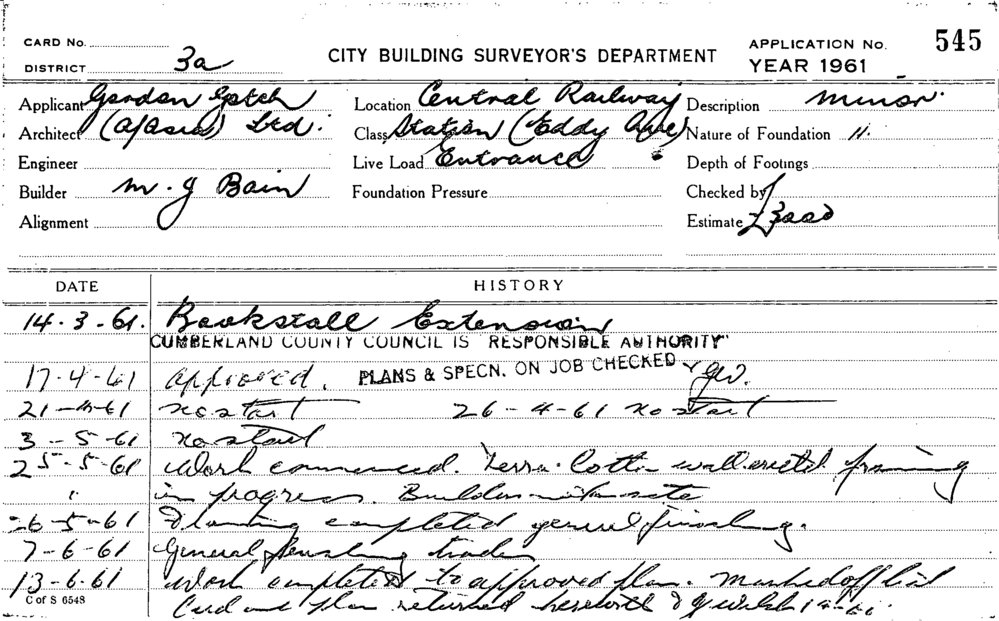 CARD No. CITY BUILDING SURVEYOR'S DEPARTMENT APPLICATION No. 545
DISTRICT 3a YEAR 1961
Applicant Gordon Gotch Location Central Railway Description minor.
Architect (A/Asia) Ltd. Class Station (Eddy Ave) Nature of Foundation "
Engineer Live Load Entrance Depth of Footings
Builder M. J Bain Foundation Pressure Checked by
Alignment Estimate £3000
DATE HISTORY
14.3.61. Bookstall Extension
CUMBERLAND COUNTY COUNCIL IS "RESPONSIBLE AUTHORITY"
17-4-61 approved. PLANS & SPECN. ON JOB CHECKED
21-4-61 no start 26-4-61 no start
3-5-61 no start
25-5-61 Work commenced. Terra-Cotta wall erected framing
" in progress. Builder on site
26-5-61 completed general finishing.
7-6-61 General finishing trades
13-6-61 Work completed to approved plan. Marked off list
C of S 6548
Card and plan returned herewith